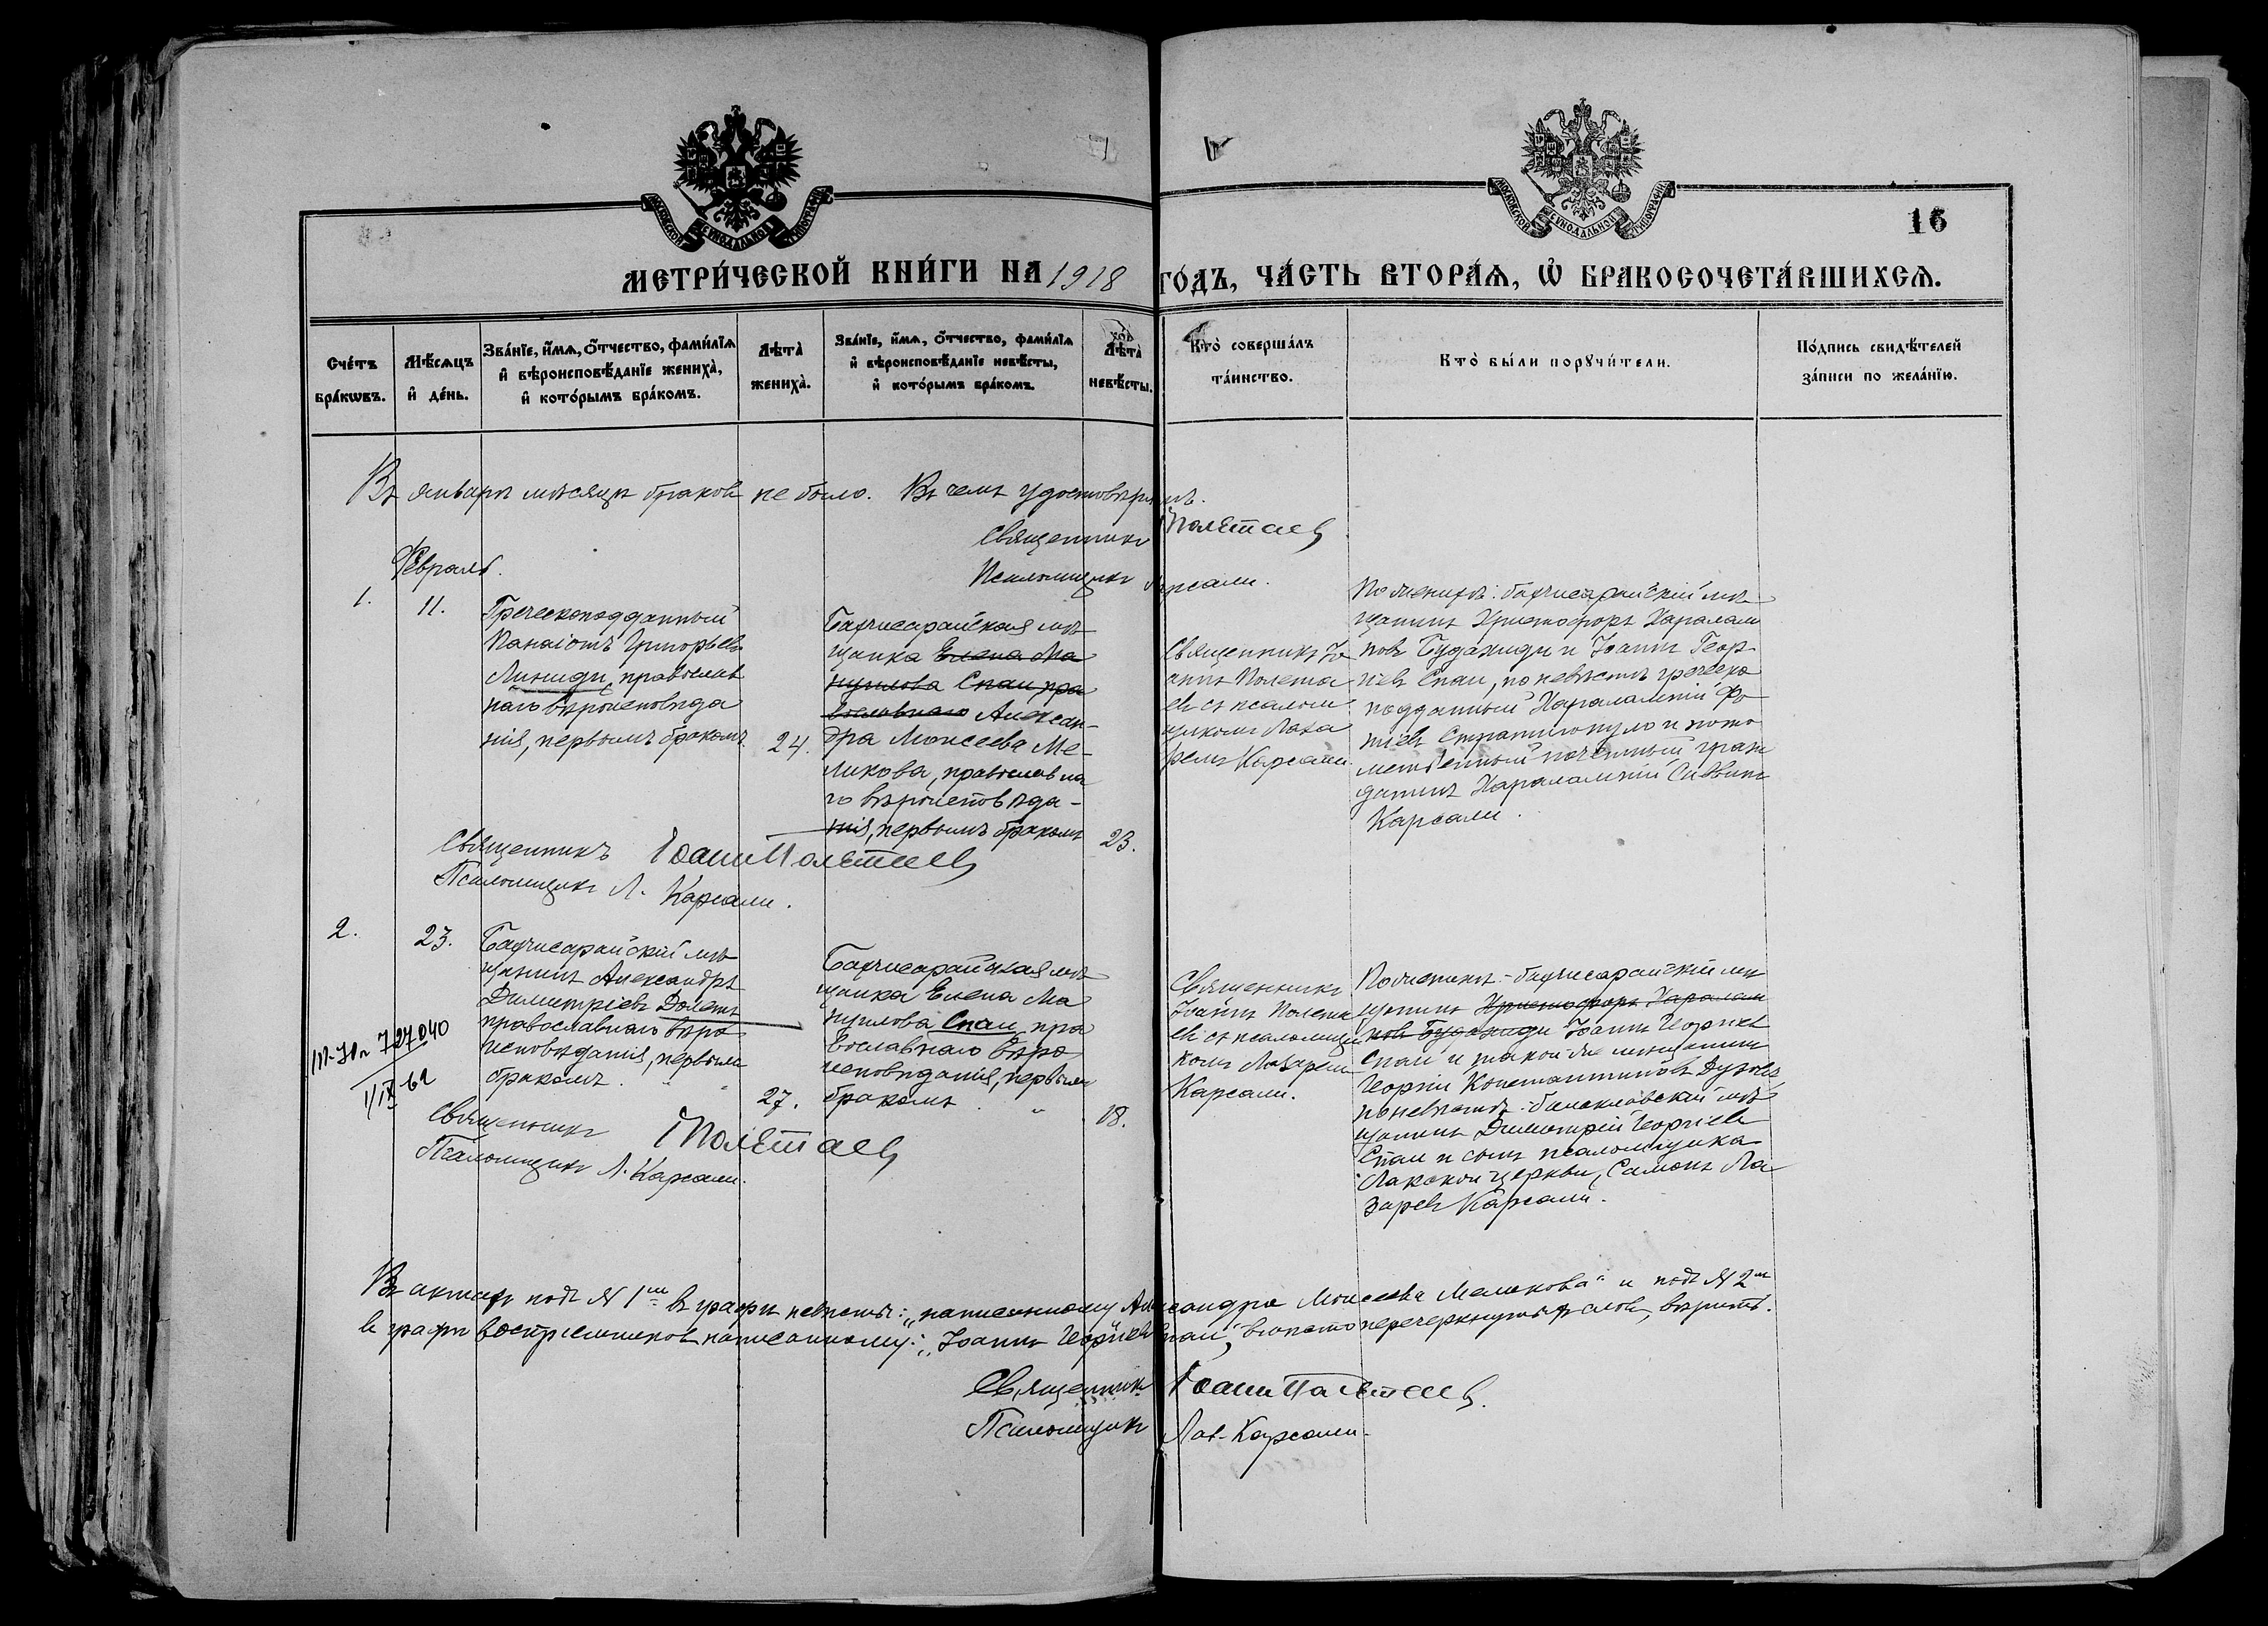 МОСКОВСКОЙ СѴНОДАЛЬНОЙ ТИПОГРАФІИ
МОСКОВСКОЙ СѴНОДАЛЬНОЙ ТИПОГРАФІИ
16
МЕТРИ́ЧЕСКОЙ КНИ́ГИ НА 1918 ГО́ДЪ, ЧА́СТЬ ВТОРА́Ѧ, Ѡ҆ БРАКОСОЧЕТА́ВШИХСѦ.
Сче́тъ бра́кѡвъ.
Мѣ́сѧцъ и҆ де́нь.
Зва́нїе, и҆́мѧ, о҆́тчество, фами́лїѧ
и҆ вѣроисповѣ́данїе жениха̀,
и҆ кото́рымъ бра́комъ.
Лѣта̀ жениха̀.
Зва́нїе, и҆́мѧ, о҆́тчество, фами́лїѧ
и҆ вѣроисповѣ́данїе невѣ́сты,
и҆ кото́рымъ бра́комъ.
Лѣта̀ невѣ́сты.
Кто̀ соверша́лъ
та́инство.
Кто̀ бы́ли порꙋчи́тели.
По́дпись свидѣ́телей
за́писи по жела́нїю.
Въ январѣ мѣсяцѣ браковъ не было. Въ чемъ удостовѣряемъ.
Священникъ Полетаев
Псаломщикъ Карсали.
Февраль.
1.
11.
Греческоподданный
Панаіотъ Григорьевъ
православ
наго вѣроисповѣда
нія, первымъ бракомъ.
24.
Бахчисарайская мѣ
щанка Елена Ма
нуилова Спаи, пра
вославнаго Алексан-
дра Моисеева Ме-
ликова, православна
го вѣроисповѣда-
нія, первымъ бракомъ
23.
Священникъ Іо
аннъ Полета
евъ съ псалом
щикомъ Лаза
ремъ Карсали.
По женихѣ: бахчисарайскій мѣ
щанинъ Христофоръ Харалам
повъ Будажиди и Іоаннъ Геор
гіевъ Спаи, по невѣстѣ греческо
подданный Харалампій Фо
тіевъ Стратигопуло и пото
мственный почетный граж
данинъ Харалампій Саввичъ
Карсали.
Священникъ Іоаннъ Полетаев
Псаломщикъ Л. Карсали.
2.
23.
Бахчисарайскій мѣ
щанинъ Александръ
Димитріевъ Долетъ
православнаго вѣро
исповѣданія, первымъ
бракомъ. " "
27.
Бахчисарайская мѣ
щанка Елена Ма
нуилова Спаи, пра
вославнаго вѣро
исповѣданія, первымъ
бракомъ "
18.
Священникъ
Іоаннъ Полета
евъ съ псаломщи
комъ Лазаремъ
Карсали.
По женихѣ: бахчисарайскій мѣ
щанинъ Христофоръ Харалам
повъ Будажиди Іоаннъ Георгіевъ
Спаи и такой же мѣщанинъ
Георгій Константиновъ
по невѣстѣ: балаклавскій мѣ
щанинъ Димитрій Георгіевъ
Спаи и сынъ псаломщика
Лакской церкви, Самсонъ Ла
заревъ Карсали.
727040
1/IX-61
Священникъ Полетаев
Псаломщикъ Л. Карсали.
Въ актахъ подъ № 1мъ въ графѣ невѣстъ: „написанному Александра Моисеева Меликова" и подъ № 2мъ
въ графѣ воспріемниковъ написанному: „Іоаннъ Георгіевъ Спаи", вмѣсто перечеркнутыхъ словъ, вѣрить.
Священникъ Іоаннъ Полетаев.
Псаломщикъ Лаз. Карсали.